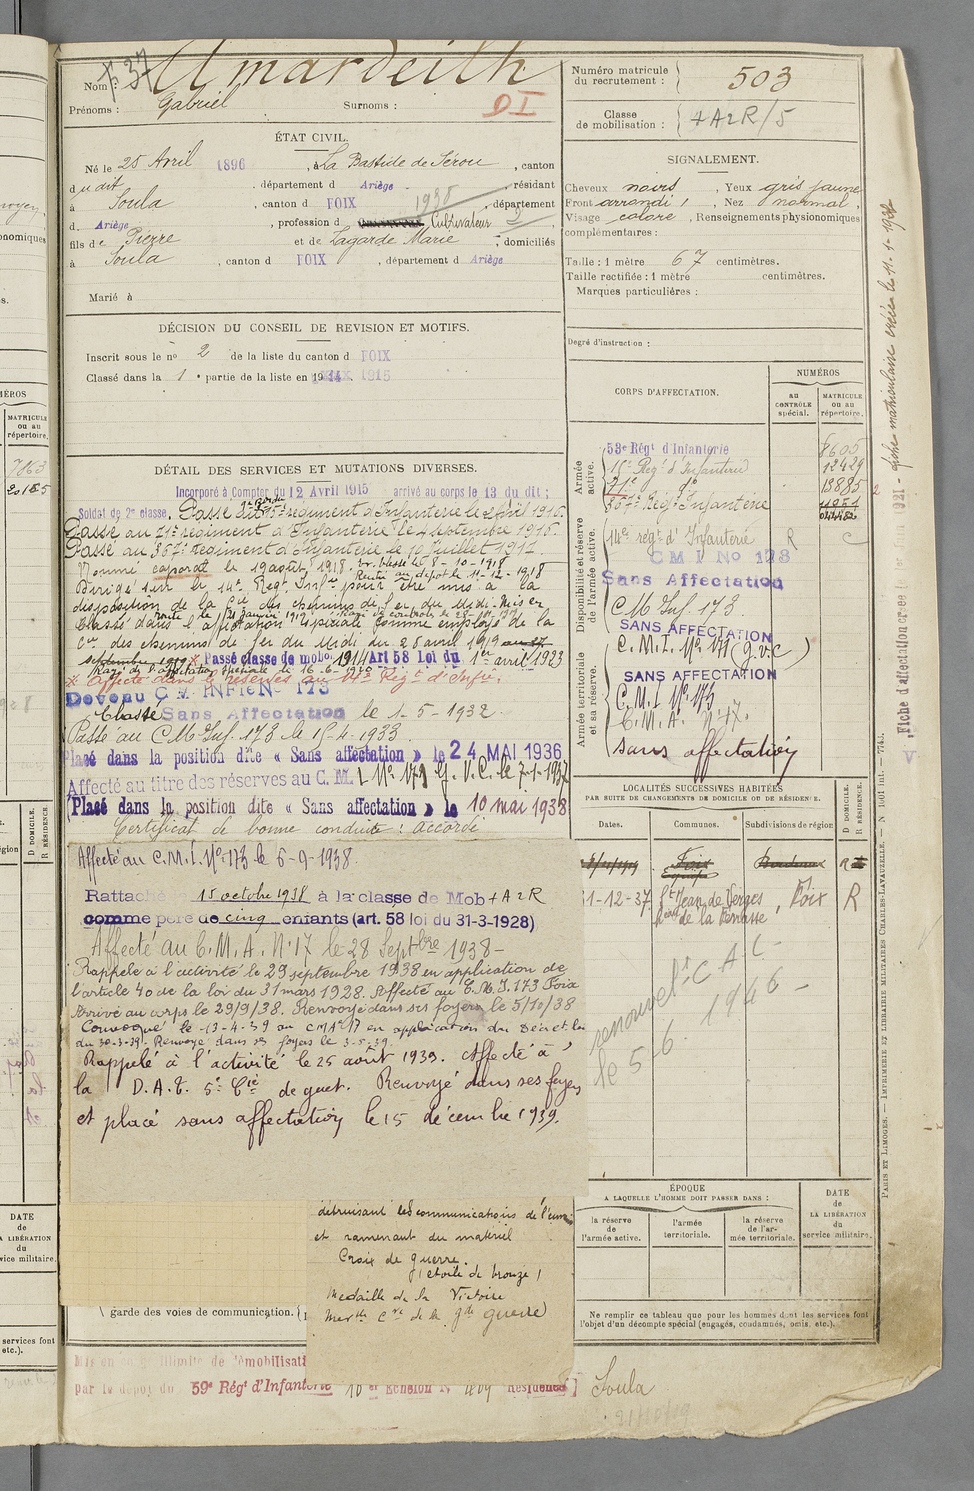 Nom : Amardeilh
Prénoms : Gabriel Surnoms :
DI
ÉTAT CIVIL.
Né le 25 Avril 1896, à La Bastide de Sérou, canton
du dit, département d Ariège, résidant
à Soula, canton d FOIX 1938, département
d Ariège, profession d Cultivateur 2
fils de Pierre et de Lagarde Marie, domiciliés
à Soula, canton d FOIX, département d Ariège
Marié à
DÉCISION DU CONSEIL DE REVISION ET MOTIFS.
Inscrit sous le no 2 de la liste du canton d FOIX
Classé dans la 1e partie de la liste en 1915
DÉTAIL DES SERVICES ET MUTATIONS DIVERSES.
Incorporé à Compter du 12 Avril 1915 arrivé au corps le 13 du dit ;
Soldat de 2e classe. Passé au 15e régiment d'Infanterie le 2 Avril 1916.
Passé au 21e régiment d'Infanterie le 4 septembre 1916.
Passé au 367e régiment d'Infanterie le 10 Juillet 1917.
Nommé caporal le 19 août 1918. Blessé le 8-10-1918
Rentré au dépôt le 11-12-1918
Dirigé sur le 14e Reg. Infie pour être mis à la
disposition de la Cie des chemins de fer du Midi. Mis en
Classé dans l'affectation spéciale comme employé de la
Cie des chemins de fer du Midi du 28 avril 1919 au 27
septembre 1919 Passé classe de mob. 1914 Art 58 Loi du 1er avril 1923
Rayé de l'affectation spéciale le 16-6-1920
Affecté dans les réserves au 14e Régt d'Infie.
Devenu C M INFIE No 173
Classé Sans Affectation le 1-5-1932
Passé au C M Inf. 173 le 15-4-1933
Placé dans la position dite « Sans affectation » le 24 MAI 1936
Affecté au titre des réserves au C. M. I No 171 G.V.C. le 7-1-1937
Placé dans la position dite « Sans affectation » le 10 mai 1938
Certificat de bonne conduite : accordé
Affecté au C.M.I. No 173 le 6-9-1938.
Rattaché 15 octobre 1938 à la classe de Mob + A 2 R
comme père de cinq enfants (art. 58 loi du 31-3-1928)
Affecté au C.M.A. No 17 le 28 Septbre 1938 -
Rappelé à l'activité le 29 septembre 1938 en application de
l'article 40 de la loi du 31 mars 1928. Affecté au C.M.I. 173 Foix
Arrivé au corps le 29/9/38. Renvoyé dans ses foyers le 5/10/38
Convoqué le 13-4-39 au CMA 17 en application du Décret loi
du 30-3-39. Renvoyé dans ses foyers le 3-5-39.
Rappelé à l'activité le 25 août 1939. Affecté à
la D.A.T. 5e Cie de guet. Renvoyé dans ses foyers
et placé sans affectation le 15 décembre 1939.
détruisant les communications de l'ennemi
et ramenant du matériel
Croix de guerre.
(étoile de bronze)
Médaille de la Victoire
de la gde guerre
garde des voies de communication.
Mis en congé illimité de démobilisati
par le dépôt du 59e Régt d'Infanterie 10er Echelon No 1209 Résidence Soula
Numéro matricule du recrutement : 503
Classe de mobilisation : + A 2 R/5
SIGNALEMENT.
Cheveux noirs, Yeux gris jaune
Front arrondi, Nez normal,
Visage coloré, Renseignements physionomiques
complémentaires :
Taille : 1 mètre 67 centimètres.
Taille rectifiée : 1 mètre centimètres.
Marques particulières :
Degré d'instruction :
CORPS D'AFFECTATION.
NUMÉROS
AU CONTRÔLE spécial.
MATRICULE ou au répertoire.
Armée active.
53e Régt d'Infanterie 8605
15e Régt d'Infanterie 12429
21e do 13885
367e Régt Infanterie
Disponibilité et réserve de l'armée active.
14e régt d'Infanterie R C
C M I No 173
Sans Affectation
C M Inf. 173.
SANS AFFECTATION
Armée territoriale et sa réserve.
C.M.I. No 171 (g.v.c)
SANS AFFECTATION
C.M.I No 173
C.M.A. No 17.
sans affectation
LOCALITÉS SUCCESSIVES HABITÉES
PAR SUITE DE CHANGEMENTS DE DOMICILE OU DE RÉSIDENCE.
Dates. Communes. Subdivisions de région
D DOMICILE. R RÉSIDENCE.
Foix Bordeaux R
31-12-37 St Jean de Verges, Foix R
de la Terrasse
renouvelt C A C
le 5-6. 1946 -
ÉPOQUE
A LAQUELLE L'HOMME DOIT PASSER DANS :
la réserve de l'armée active.
l'armée territoriale.
la réserve de l'armée territoriale.
DATE de LA LIBÉRATION du service militaire.
Ne remplir ce tableau que pour les hommes dont les services font
l'objet d'un décompte spécial (engagés, condamnés, omis, etc.).
PARIS ET LIMOGES. — IMPRIMERIE ET LIBRAIRIE MILITAIRES CHARLES-LAVAUZELLE.
Fiche d'affectation créée le 1er Juin 1921 - fiche matriculaire créée le 11-1-19
MATRICULE ou au répertoire.
7863
DATE de LA LIBÉRATION du service militaire.
services font
etc.).